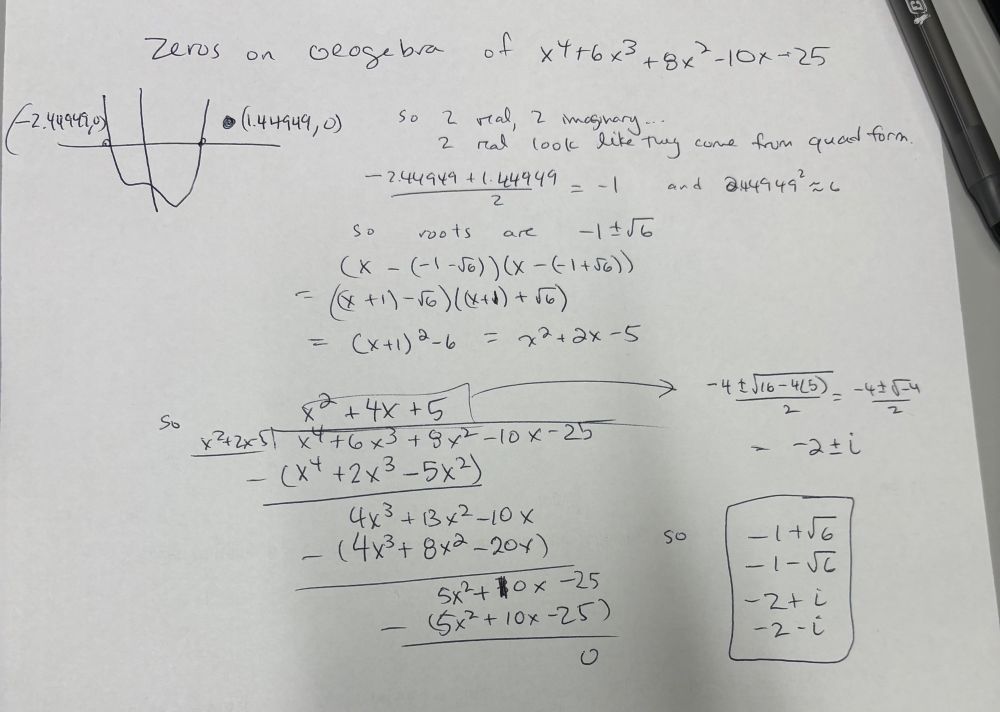 Zeros on Geogebra of x⁴+6x³+8x²-10x-25
(-2.44949,0)
(1.44949, 0)
so 2 real, 2 imaginary...
2 real look like they come from quad form.
(-2.44949 + 1.44949)/2 = -1 and 2.44949² ≈ 6
so roots are -1±√6
(x - (-1-√6))(x - (-1+√6))
= ((x+1)-√6)((x+1)+√6)
= (x+1)²-6 = x²+2x-5
(-4±√(16-4(5)))/2 = (-4±√-4)/2
= -2±i
x²+4x+5
so x²+2x-5 ) x⁴+6x³+8x²-10x-25
-(x⁴+2x³-5x²)
4x³+13x²-10x
-(4x³+8x²-20x)
5x²+10x-25
-(5x²+10x-25)
0
so
-1+√6
-1-√6
-2+i
-2-i